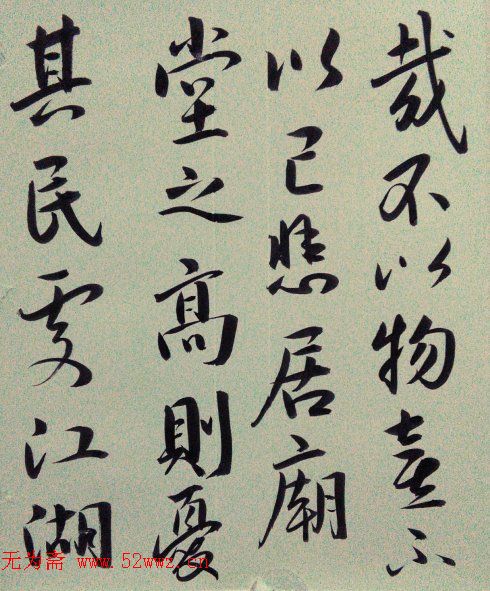 哉不以物喜不
以己悲居廟
堂之高則憂
其民處江湖
无为斋 www.52wwz.cn